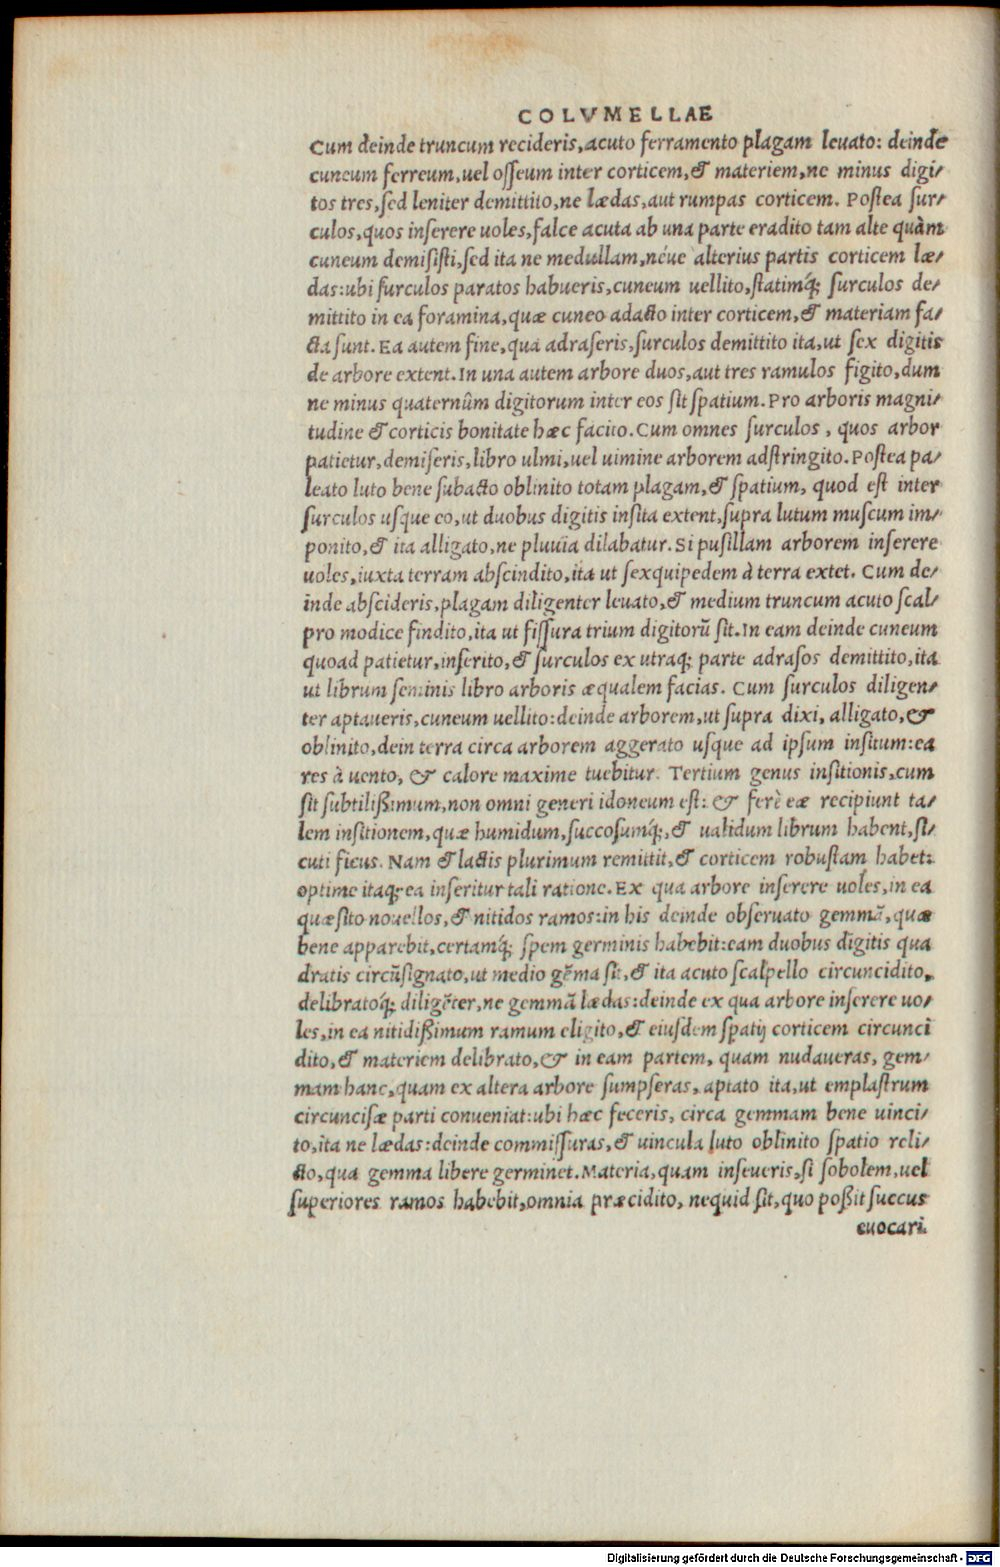 COLVMELLAE
Cum deinde truncum recideris, acuto ferramento plagam leuato: deinde
cuneum ferreum, uel osseum inter corticem, & materiem, ne minus digi-
tos tres, sed leniter demittito, ne lædas, aut rumpas corticem. Postea sur-
culos, quos inserere uoles, falce acuta ab una parte eradito tam alte quàm
cuneum demisisti, sed ita ne medullam, néue alterius partis corticem læ-
das: ubi surculos paratos habueris, cuneum uellito, statimq́; surculos de-
mittito in ea foramina, quæ cuneo adacto inter corticem, & materiam fa-
cta sunt. Ea autem fine, qua adraseris, surculos demittito ita, ut sex digitis
de arbore extent. In una autem arbore duos, aut tres ramulos figito, dum
ne minus quaternûm digitorum inter eos sit spatium. Pro arboris magni-
tudine & corticis bonitate hæc facito. Cum omnes surculos, quos arbor
patietur, demiseris, libro ulmi, uel uimine arborem adstringito. Postea pa-
leato luto bene subacto oblinito totam plagam, & spatium, quod est inter
surculos usque eo, ut duobus digitis insita extent, supra lutum muscum im-
ponito, & ita alligato, ne pluuia dilabatur. Si pusillam arborem inserere
uoles, iuxta terram abscindito, ita ut sexquipedem à terra extet. Cum de-
inde abscideris, plagam diligenter leuato, & medium truncum acuto scal-
pro modice findito, ita ut fissura trium digitorũ sit. In eam deinde cuneum
quoad patietur, inserito, & surculos ex utraq; parte adrasos demittito, ita
ut librum seminis libro arboris æqualem facias. Cum surculos diligen-
ter aptaueris, cuneum uellito: deinde arborem, ut supra dixi, alligato, &
oblinito, dein terra circa arborem aggerato usque ad ipsum insitum: ea
res à uento, & calore maxime tuebitur. Tertium genus insitionis, cum
sit subtilißimum, non omni generi idoneum est: & ferè eæ recipiunt ta-
lem insitionem, quæ humidum, succosumq́;, & ualidum librum habent, si-
cuti ficus. Nam & lactis plurimum remittit, & corticem robustam habet:
optime itaq; ea inseritur tali ratione. Ex qua arbore inserere uoles, in ea
quæsito nouellos, & nitidos ramos: in his deinde obseruato gemmã, quæ
bene apparebit, certamq́; spem germinis habebit: eam duobus digitis qua
dratis circũsignato, ut medio gẽma sit, & ita acuto scalpello circuncidito,
delibratoq́; diligẽter, ne gemmã lædas: deinde ex qua arbore inserere uo-
les, in ea nitidißimum ramum eligito, & eiusdem spatij corticem circunci
dito, & materiem delibrato, & in eam partem, quam nudaueras, gem-
mam hanc, quam ex altera arbore sumpseras, aptato ita, ut emplastrum
circuncisæ parti conueniat: ubi hæc feceris, circa gemmam bene uinci-
to, ita ne lædas: deinde commissuras, & uincula luto oblinito spatio reli-
cto, qua gemma libere germinet. Materia, quam inseueris, si sobolem, uel
superiores ramos habebit, omnia præcidito, nequid sit, quo poßit succus
euocari
Digitalisierung gefördert durch die Deutsche Forschungsgemeinschaft - DFG